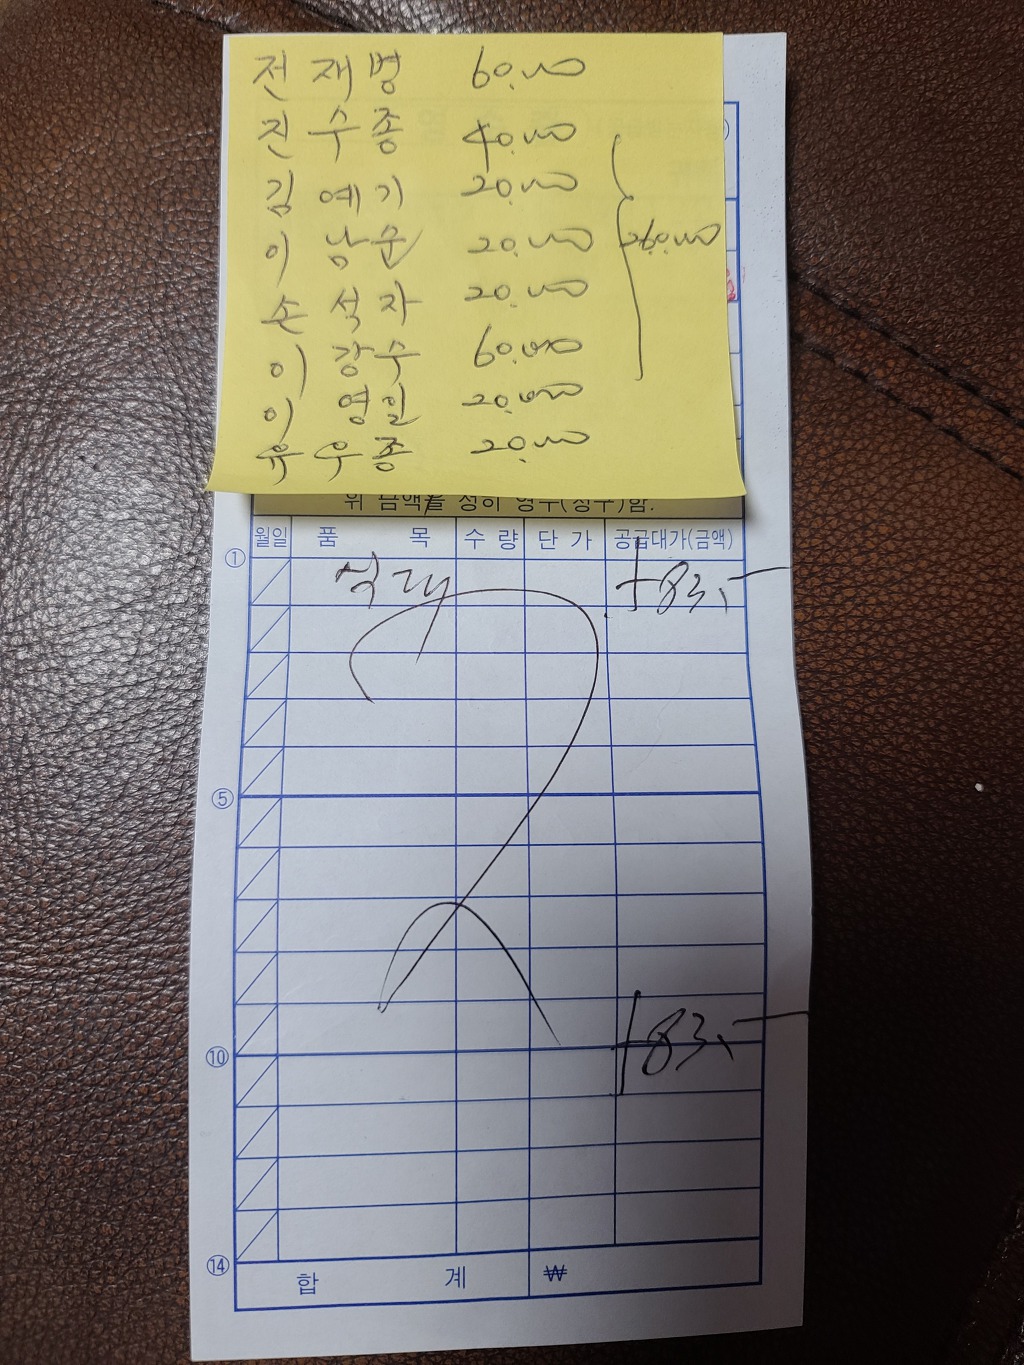 전 재병 60,000
진 수종 40,000
김 예기 20,000
이 남운 20,000
260,000
손 석자 20,000
이 강수 60,000
이 영일 20,000
유 우종 20,000
위 금액을 정히 영수(청구)함.
월일 품 목 수 량 단 가 공급대가(금액)
① 식대 183,-
⑤
⑩ 183,-
⑭
합 계 ₩